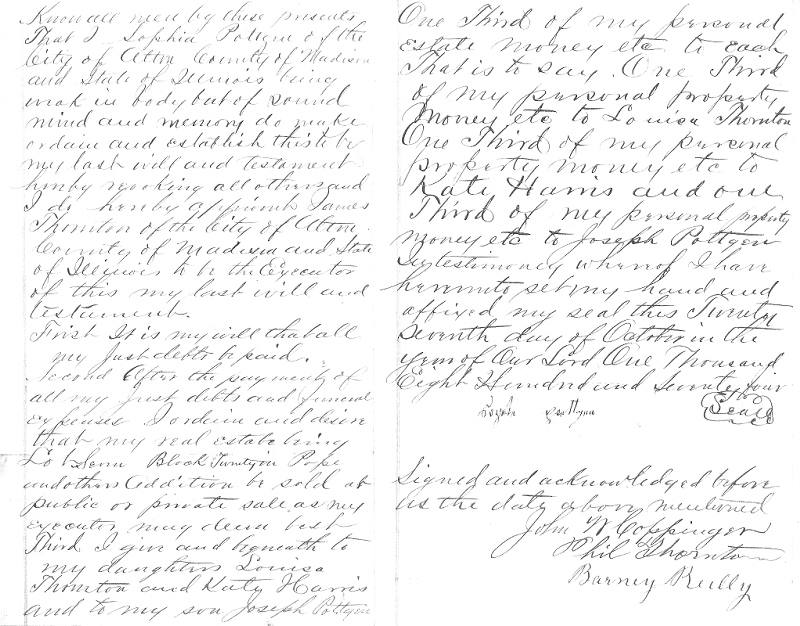 Know all men by these presents
That I Sophia Pottgen of the
City of Alton County of Madison
and State of Illinois being
weak in body but of sound
mind and memory do make
ordain and establish this to be
my last will and testament
hereby revoking all others and
I do hereby appoint James
Thornton of the City of Alton
County of Madison and State
of Illinois to be the Executor
of this my last will and
testament.
First It is my will that all
my just debts be paid.
Second After the payment of
all my just debts and funeral
expenses I ordain and desire
that my real estate being
Lot Seven Block Twenty on Pope
and others Addition be sold at
public or private sale as my
executor may deem best
Third I give and bequeath to
my daughters Louisa
Thornton and Katy Harris
and to my son Joseph Pottgen
One Third of my personal
estate money etc to each
That is to say. One Third
of my personal property
money etc to Louisa Thornton
One Third of my personal
property money etc to
Kate Harris and one
Third of my personal property
money etc to Joseph Pottgen
In testimony whereof I have
hereunto set my hand and
affixed my seal this Twenty
Seventh day of October in the
year of Our Lord One Thousand
Eight Hundred and Seventy four
Pottgen Seal
Signed and acknowledged before
us the date above mentioned
John W Coppinger
Phil Thornton
Barney Reilly